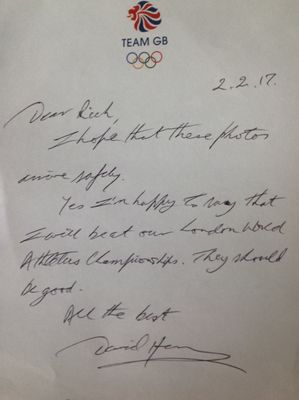 TEAM GB
2.2.17.
Dear Rich,
I hope that these photos
arrive safely.
Yes I'm happy to say that
I will be at our London World
Athletics Championships. They should
be good.
All the best
David